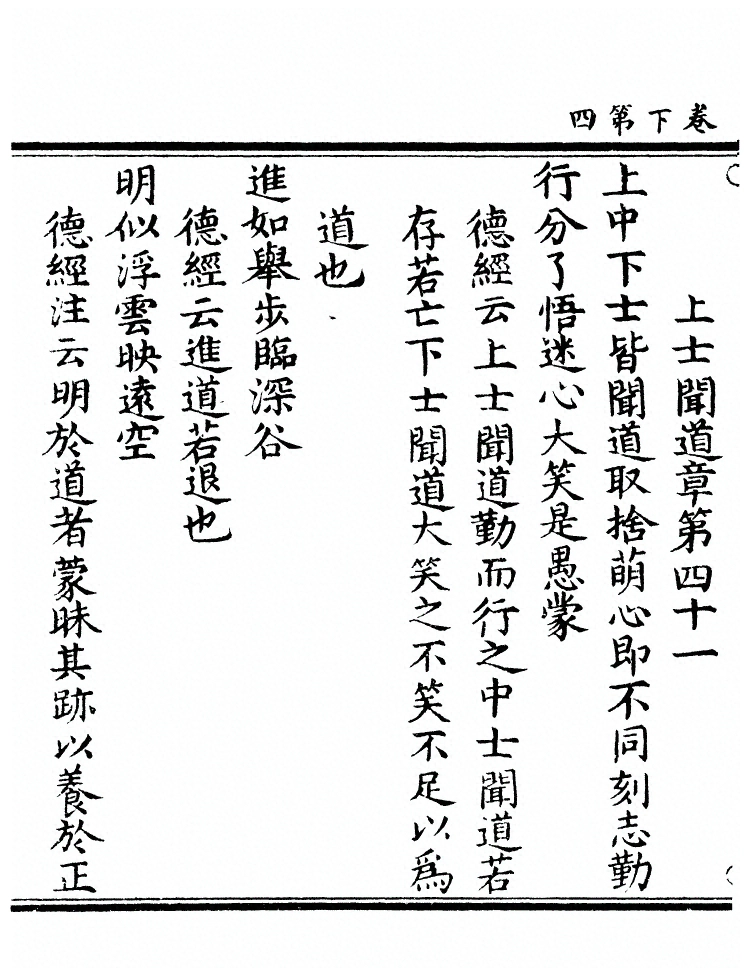 卷下第四
上士聞道章第四十一
上中下士皆聞道取捨萌心即不同刻志勤
行分了悟迷心大笑是愚蒙
德經云上士聞道勤而行之中士聞道若
存若亡下士聞道大笑之不笑不足以為
道也
進如舉步臨深谷
德經云進道若退也
明似浮雲映遠空
德經注云明於道者蒙昧其跡以養於正